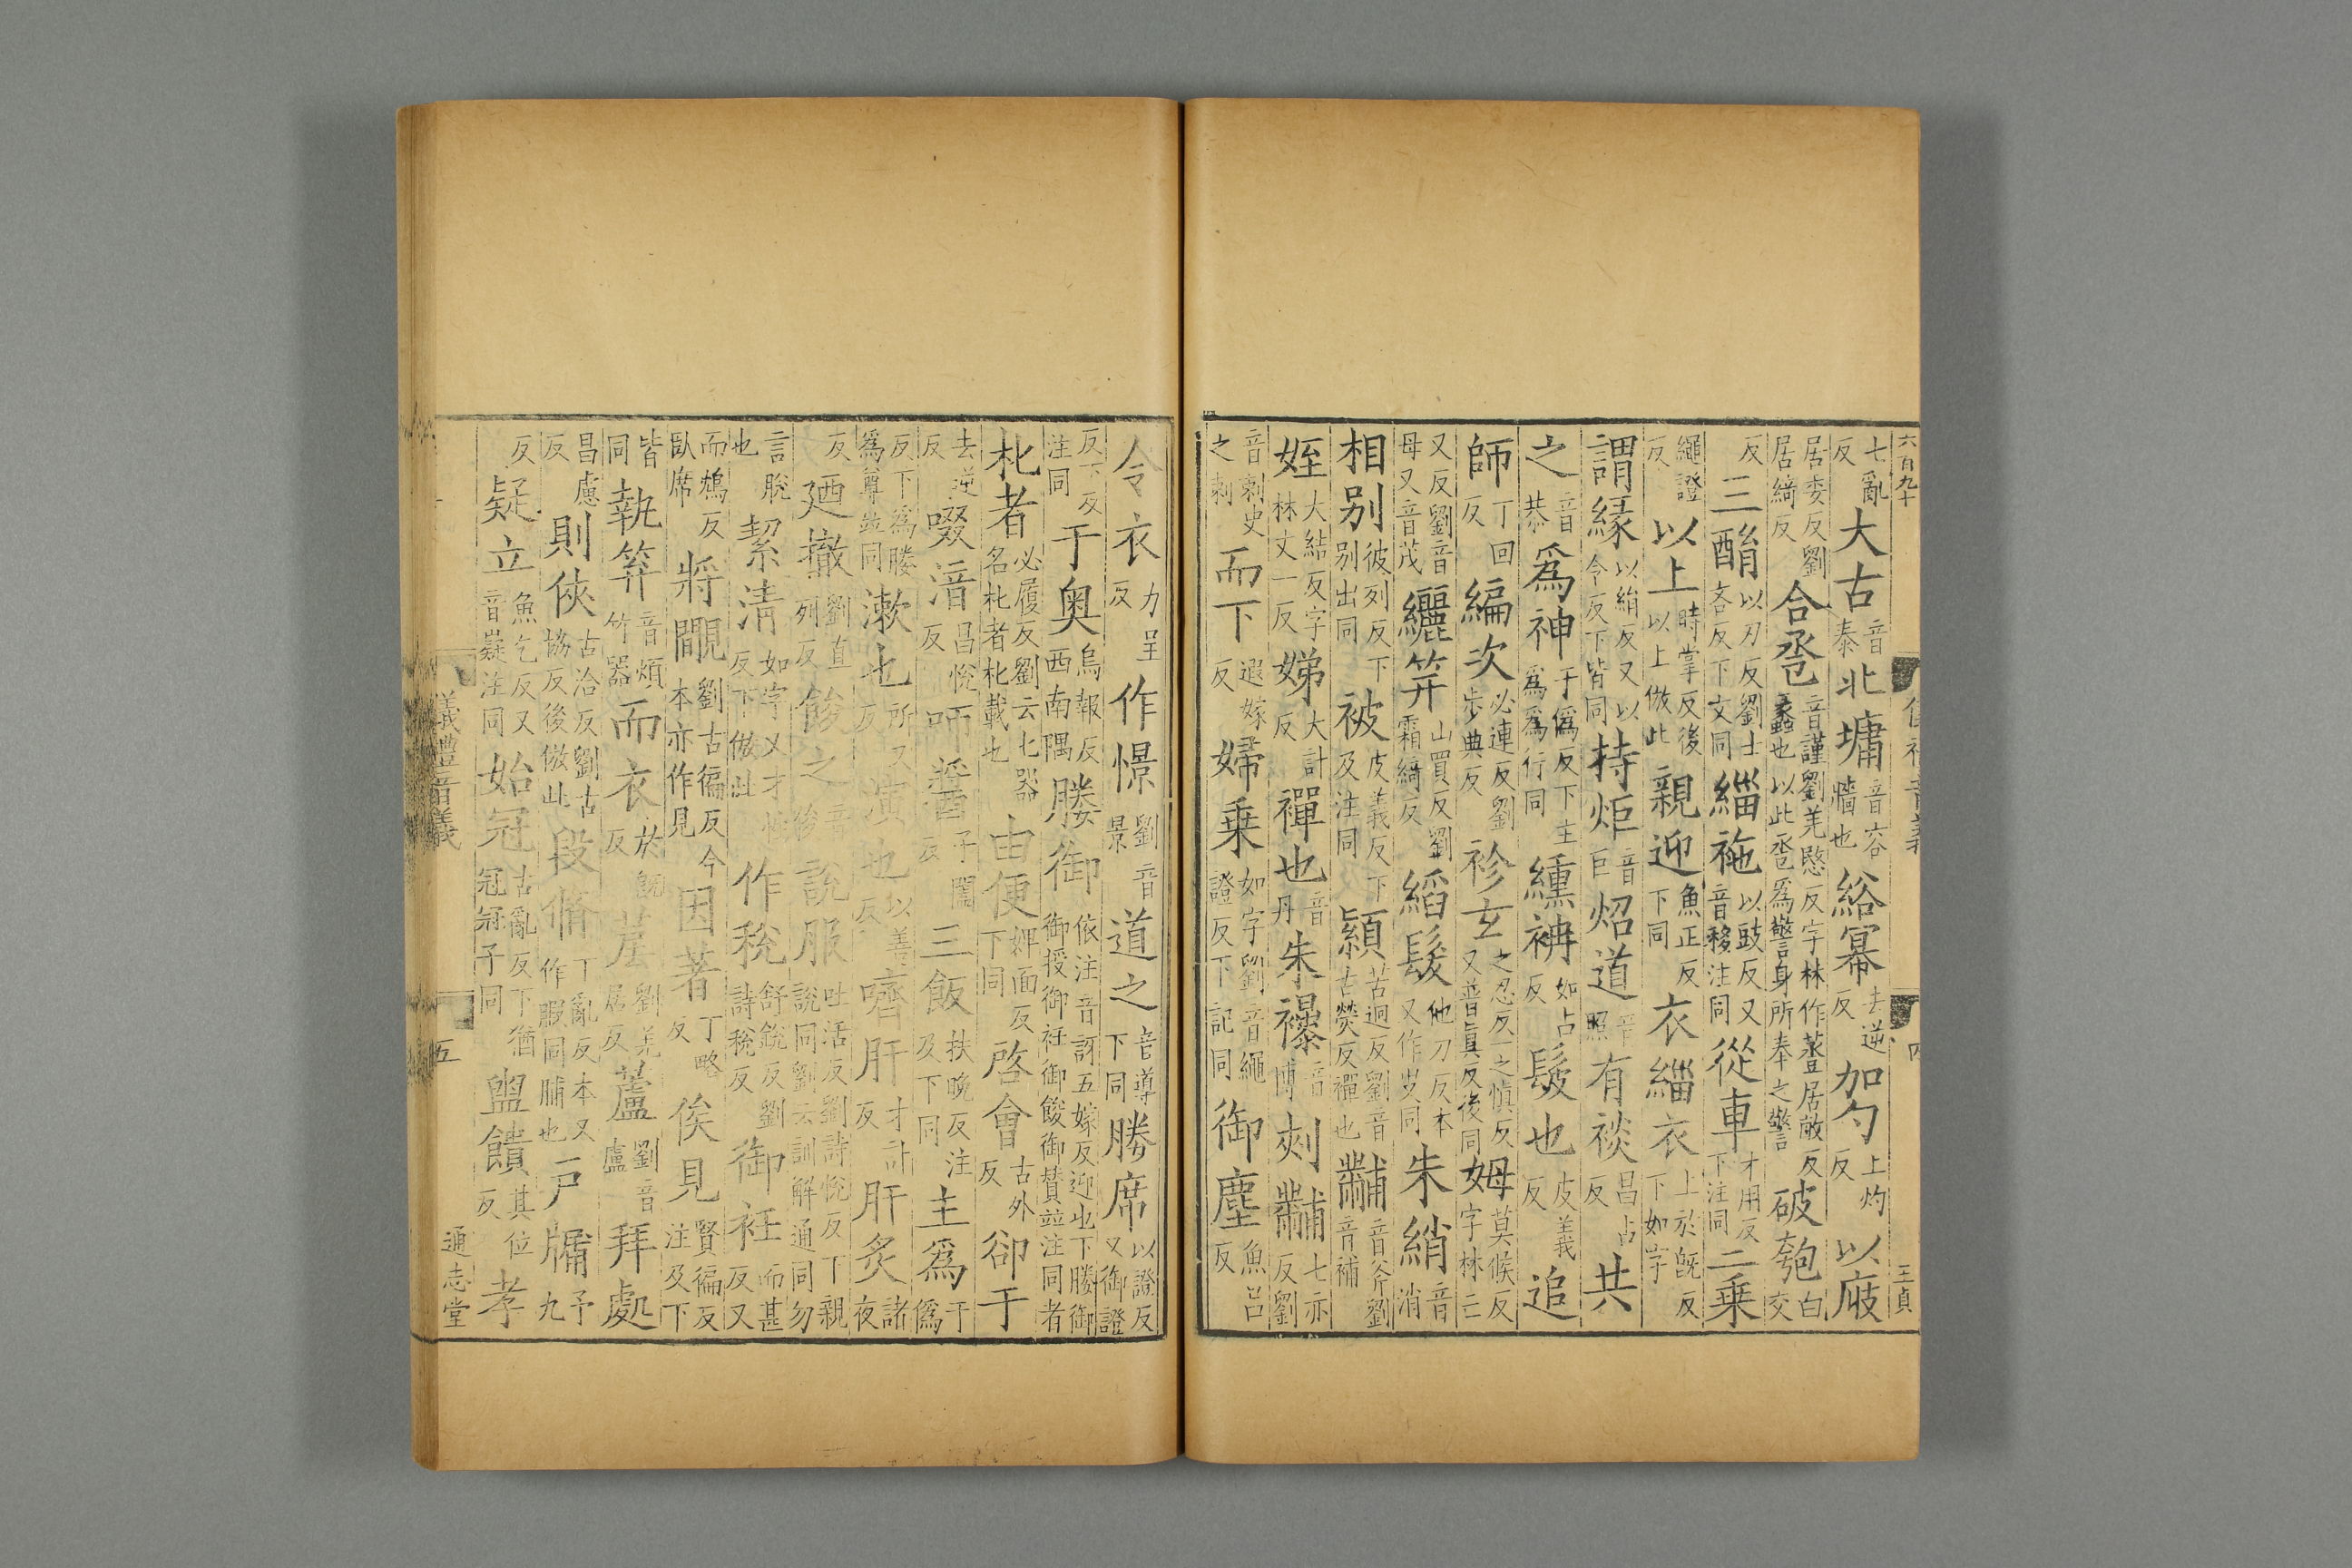 六百九十
七亂反大古音泰北墉音容牆也綌幂去逆反加勺上灼反以㕑
居委反劉居綺反合巹音謹劉羌愍反字林作䒱居敵反蠡也以此巹爲警身所奉之警破匏白交
反三酳以刃反劉士吝反下文同緇袘以豉反又音移注同從車才用反下注同二乗
繩證反以上時掌反後以上倣此親迎魚正反下同衣緇衣上於旣反下如字
謂緣以絹反又以令反下皆同持炬音巨炤道音照有裧昌占反共
之音恭爲神于僞反下主爲爲行同纁袡如占反髲也皮義反追
師丁回反編次必連反劉步典反袗玄之忍反一之愼反又普眞反後同姆莫候反字林亡
又反劉音母又音茂纚笄山買反劉霜綺反縚髮他刀反本又作㕛同朱綃音消
相别彼列反下别出同被皮義反下及注同顈苦迥反劉音古熒反襌也黼音斧劉音補
姪大結反字林丈一反娣大計反襌也音丹朱襮音博刻黼七亦反劉
音剌史之剌而下遐嫁反婦乗如字劉音繩證反下記同御塵魚呂反
四
王貞
令衣力呈反作憬劉音景道之音導下同勝席以證反又御證
反下反注同于奥烏報反西南隅媵御依注音訝五嫁反迎也下媵御御授御衽御餕御贊竝注同者
朼者必履反劉云匕器名朼者朼載也由便婢面反下同啓會古外反卻于
去逆反啜湆昌悅反師醬子閤反三飯扶晚反注及下同主爲于僞
反下爲媵爲尊竝同漱也所又反演也以善反嚌肝才計反肝炙諸夜
反廼撤劉直列反餕之音後說服吐活反劉詩悅反丁親說同劉云訓解通同勿
言脫也絜清如字又才性反下倣此作稅舒銳反劉詩稅反御衽而甚反又
而鴆反臥席將覸劉古徧反今本亦作見因著丁略反俟見賢徧反注及下
皆同執笲音煩竹器而衣於旣反㕆劉羌居反蘆劉音盧拜處
昌慮反則俠古洽反劉古協反後倣此段脩丁亂反本又作腶同脯也戸牖予九
反疑立魚乞反又音嶷注同始冠古亂反下猶冠冠子同盥饋其位反孝
儀禮音義
五
通志堂